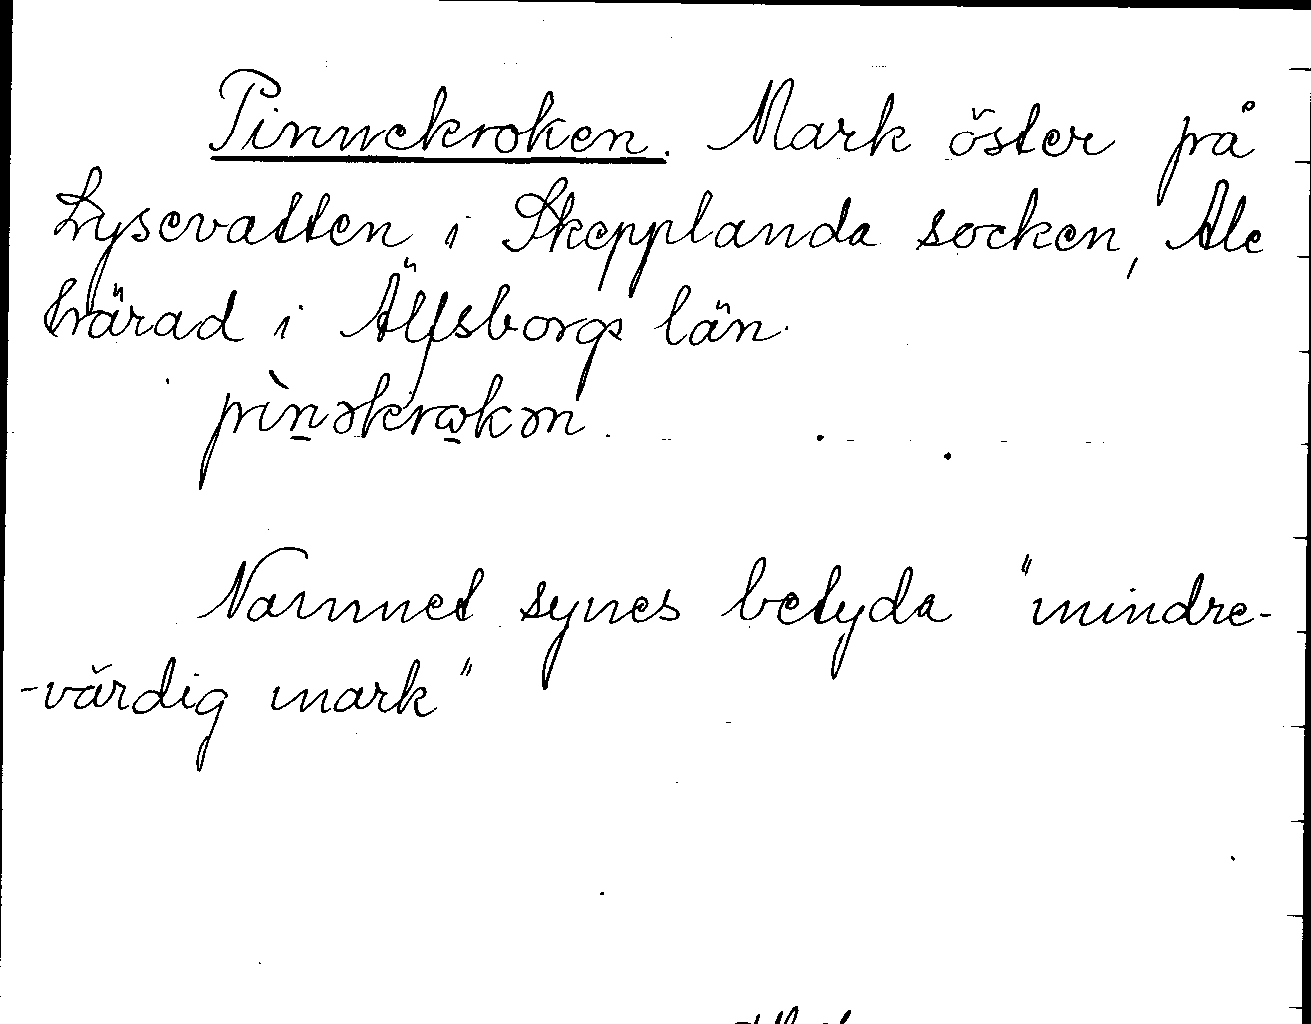 Pinnekroken. Mark öster på
Lysevatten i Skepplanda socken, Ale
härad i Älfsborgs län.
pìn̲əkrω̲kən.
Namnet synes betyda "mindre-
-värdig mark"